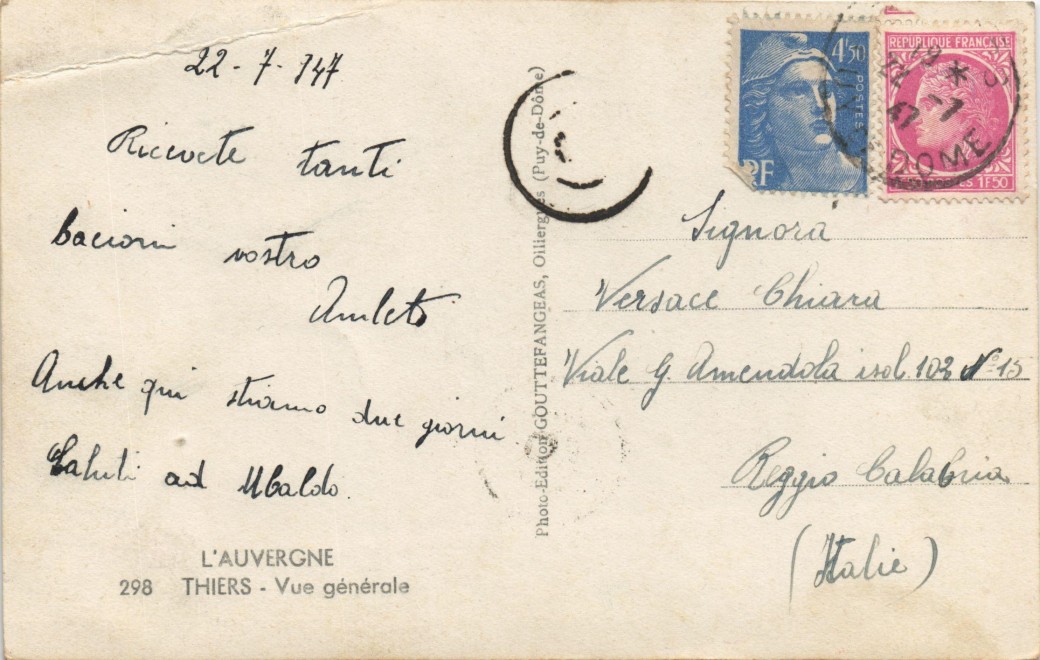 22-7-947
Ricevete tanti
bacioni vostro
Amleto
Anche qui stiamo due giorni
Saluti ad Ubaldo.
L'AUVERGNE
298 THIERS - Vue générale
Photo-Edition GOUTTEFANGEAS, Olliergues (Puy-de-Dôme)
4f50
POSTES
RF
REPUBLIQUE FRANÇAISE
POSTES 1F50
19 *
22 -7
47
DOME
Signora
Versace Chiara
Viale G. Amendola isol. 102 N° 15
Reggio Calabria
(Italie)